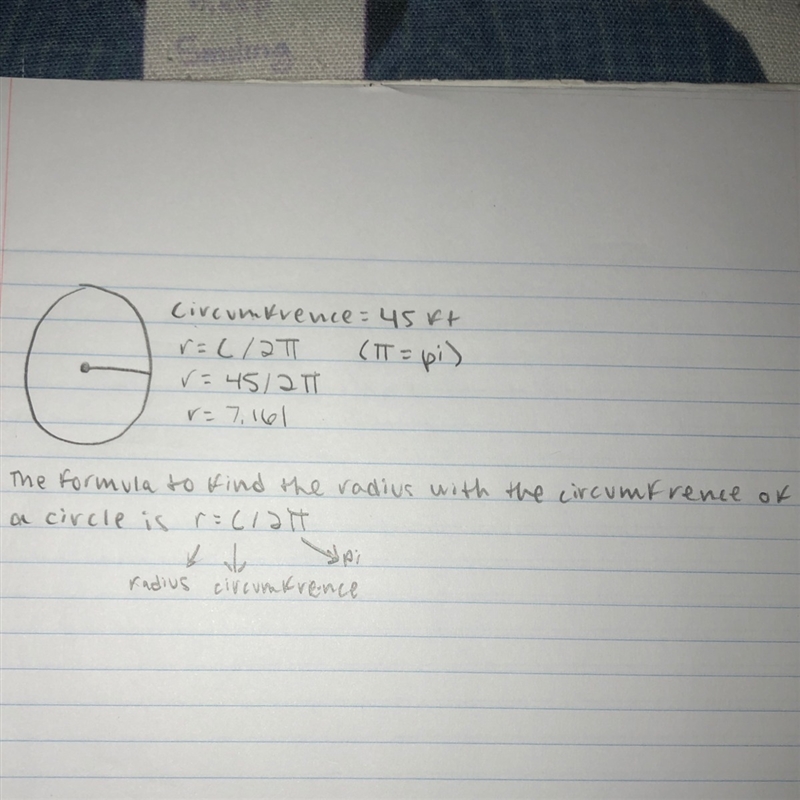 Keep
Smiling
Circumfrence = 45 ft
r = C / 2π (π = pi)
r = 45 / 2π
r = 7.161
The formula to find the radius with the circumfrence of
a circle is r = C / 2π
pi
radius circumfrence